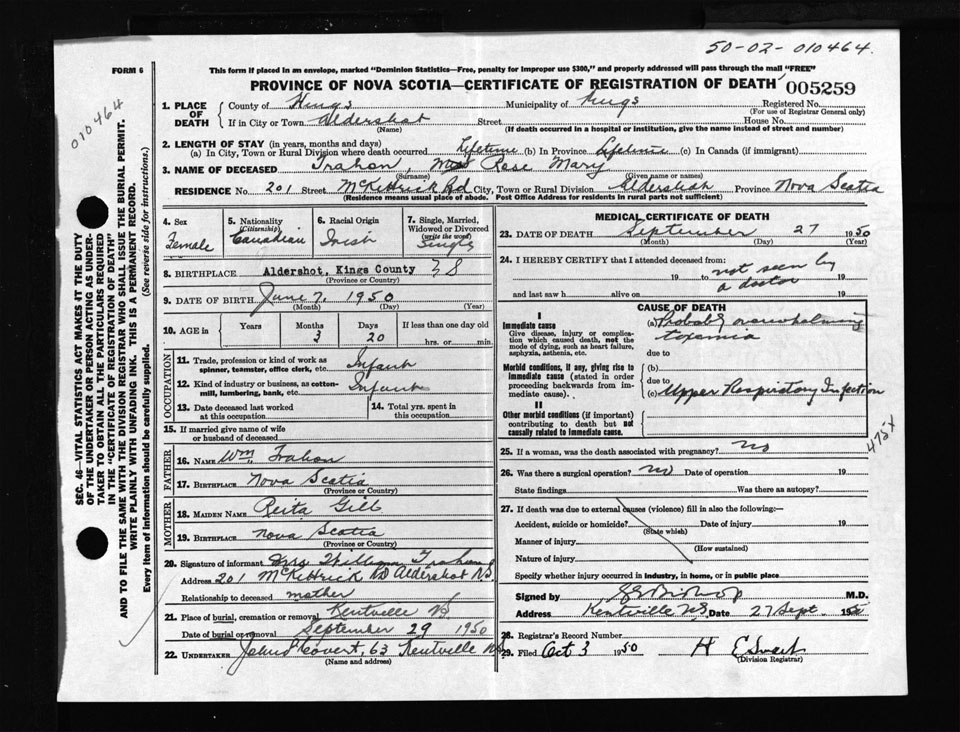 50-02-010464.
FORM 6
This form if placed in an envelope, marked "Dominion Statistics—Free, penalty for improper use $300," and properly addressed will pass through the mail "FREE"
PROVINCE OF NOVA SCOTIA—CERTIFICATE OF REGISTRATION OF DEATH
005259
010464
SEC. 46—VITAL STATISTICS ACT MAKES IT THE DUTY
OF THE UNDERTAKER OR PERSON ACTING AS UNDER-
TAKER TO OBTAIN ALL THE PARTICULARS REQUIRED
IN THE "CERTIFICATE OF REGISTRATION OF DEATH"
AND TO FILE THE SAME WITH THE DIVISION REGISTRAR WHO SHALL ISSUE THE BURIAL PERMIT.
WRITE PLAINLY WITH UNFADING INK. THIS IS A PERMANENT RECORD.
Every item of information should be carefully supplied. (See reverse side for instructions.)
1. PLACE OF DEATH County of Kings Municipality of Kings Registered No.
(For use of Registrar General only)
If in City or Town Aldershot Street House No.
(Name) (If death occurred in a hospital or institution, give the name instead of street and number)
2. LENGTH OF STAY (in years, months and days)
(a) In City, Town or Rural Division where death occurred Lifetime (b) In Province Lifetime (c) In Canada (if immigrant)
3. NAME OF DECEASED Trahan, Rose Mary
(Surname) (Given name or names)
RESIDENCE No. 201 Street McKittrick Rd City, Town or Rural Division Aldershot Province Nova Scotia
(Residence means usual place of abode. Post Office Address for residents in rural parts not sufficient)
4. Sex
Female
5. Nationality
(Citizenship)
Canadian
6. Racial Origin
Irish
7. Single, Married,
Widowed or Divorced
(write the word)
Single
8. BIRTHPLACE Aldershot, Kings County
(Province or Country)
9. DATE OF BIRTH June 7, 1950
(Month) (Day) (Year)
10. AGE in Years Months Days If less than one day old
3 20 hrs. or min.
OCCUPATION
11. Trade, profession or kind of work as
spinner, teamster, office clerk, etc. Infant
12. Kind of industry or business, as cotton-
mill, lumbering, bank, etc. Infant
13. Date deceased last worked
at this occupation
14. Total yrs. spent in
this occupation
15. If married give name of wife
or husband of deceased
FATHER
16. NAME Wm Trahan
17. BIRTHPLACE Nova Scotia
(Province or Country)
MOTHER
18. MAIDEN NAME Reita Gill
19. BIRTHPLACE Nova Scotia
(Province or Country)
20. Signature of informant Mrs William Trahan
Address 201 McKittrick Rd Aldershot NS.
Relationship to deceased mother
21. Place of burial, cremation or removal Kentville NS
Date of burial or removal September 29 1950
22. UNDERTAKER John S Covert, 63 Kentville NS
(Name and address)
MEDICAL CERTIFICATE OF DEATH
23. DATE OF DEATH September 27 1950
(Month) (Day) (Year)
24. I HEREBY CERTIFY that I attended deceased from:
19 to not seen by 19
a doctor
and last saw h alive on 19
CAUSE OF DEATH
I
Immediate cause
Give disease, injury or complica-
tion which caused death, not the
mode of dying, such as heart failure,
asphyxia, asthenia, etc.
(a) Probably overwhelming
toxemia
due to
Morbid conditions, if any, giving rise to
immediate cause (stated in order
proceeding backwards from im-
mediate cause).
(b)
due to
(c) Upper Respiratory Infection
II
Other morbid conditions (if important)
contributing to death but not
causally related to immediate cause.
475X
25. If a woman, was the death associated with pregnancy? no
26. Was there a surgical operation? no Date of operation 19
State findings Was there an autopsy?
27. If death was due to external causes (violence) fill in also the following:—
Accident, suicide or homicide? Date of injury 19
(State which)
Manner of injury
(How sustained)
Nature of injury
Specify whether injury occurred in industry, in home, or in public place
Signed by Bishop M.D.
Address Kentville NS. Date 27 Sept. 1950
28. Registrar's Record Number
29. Filed Oct 3 1950 H E Swart
(Division Registrar)